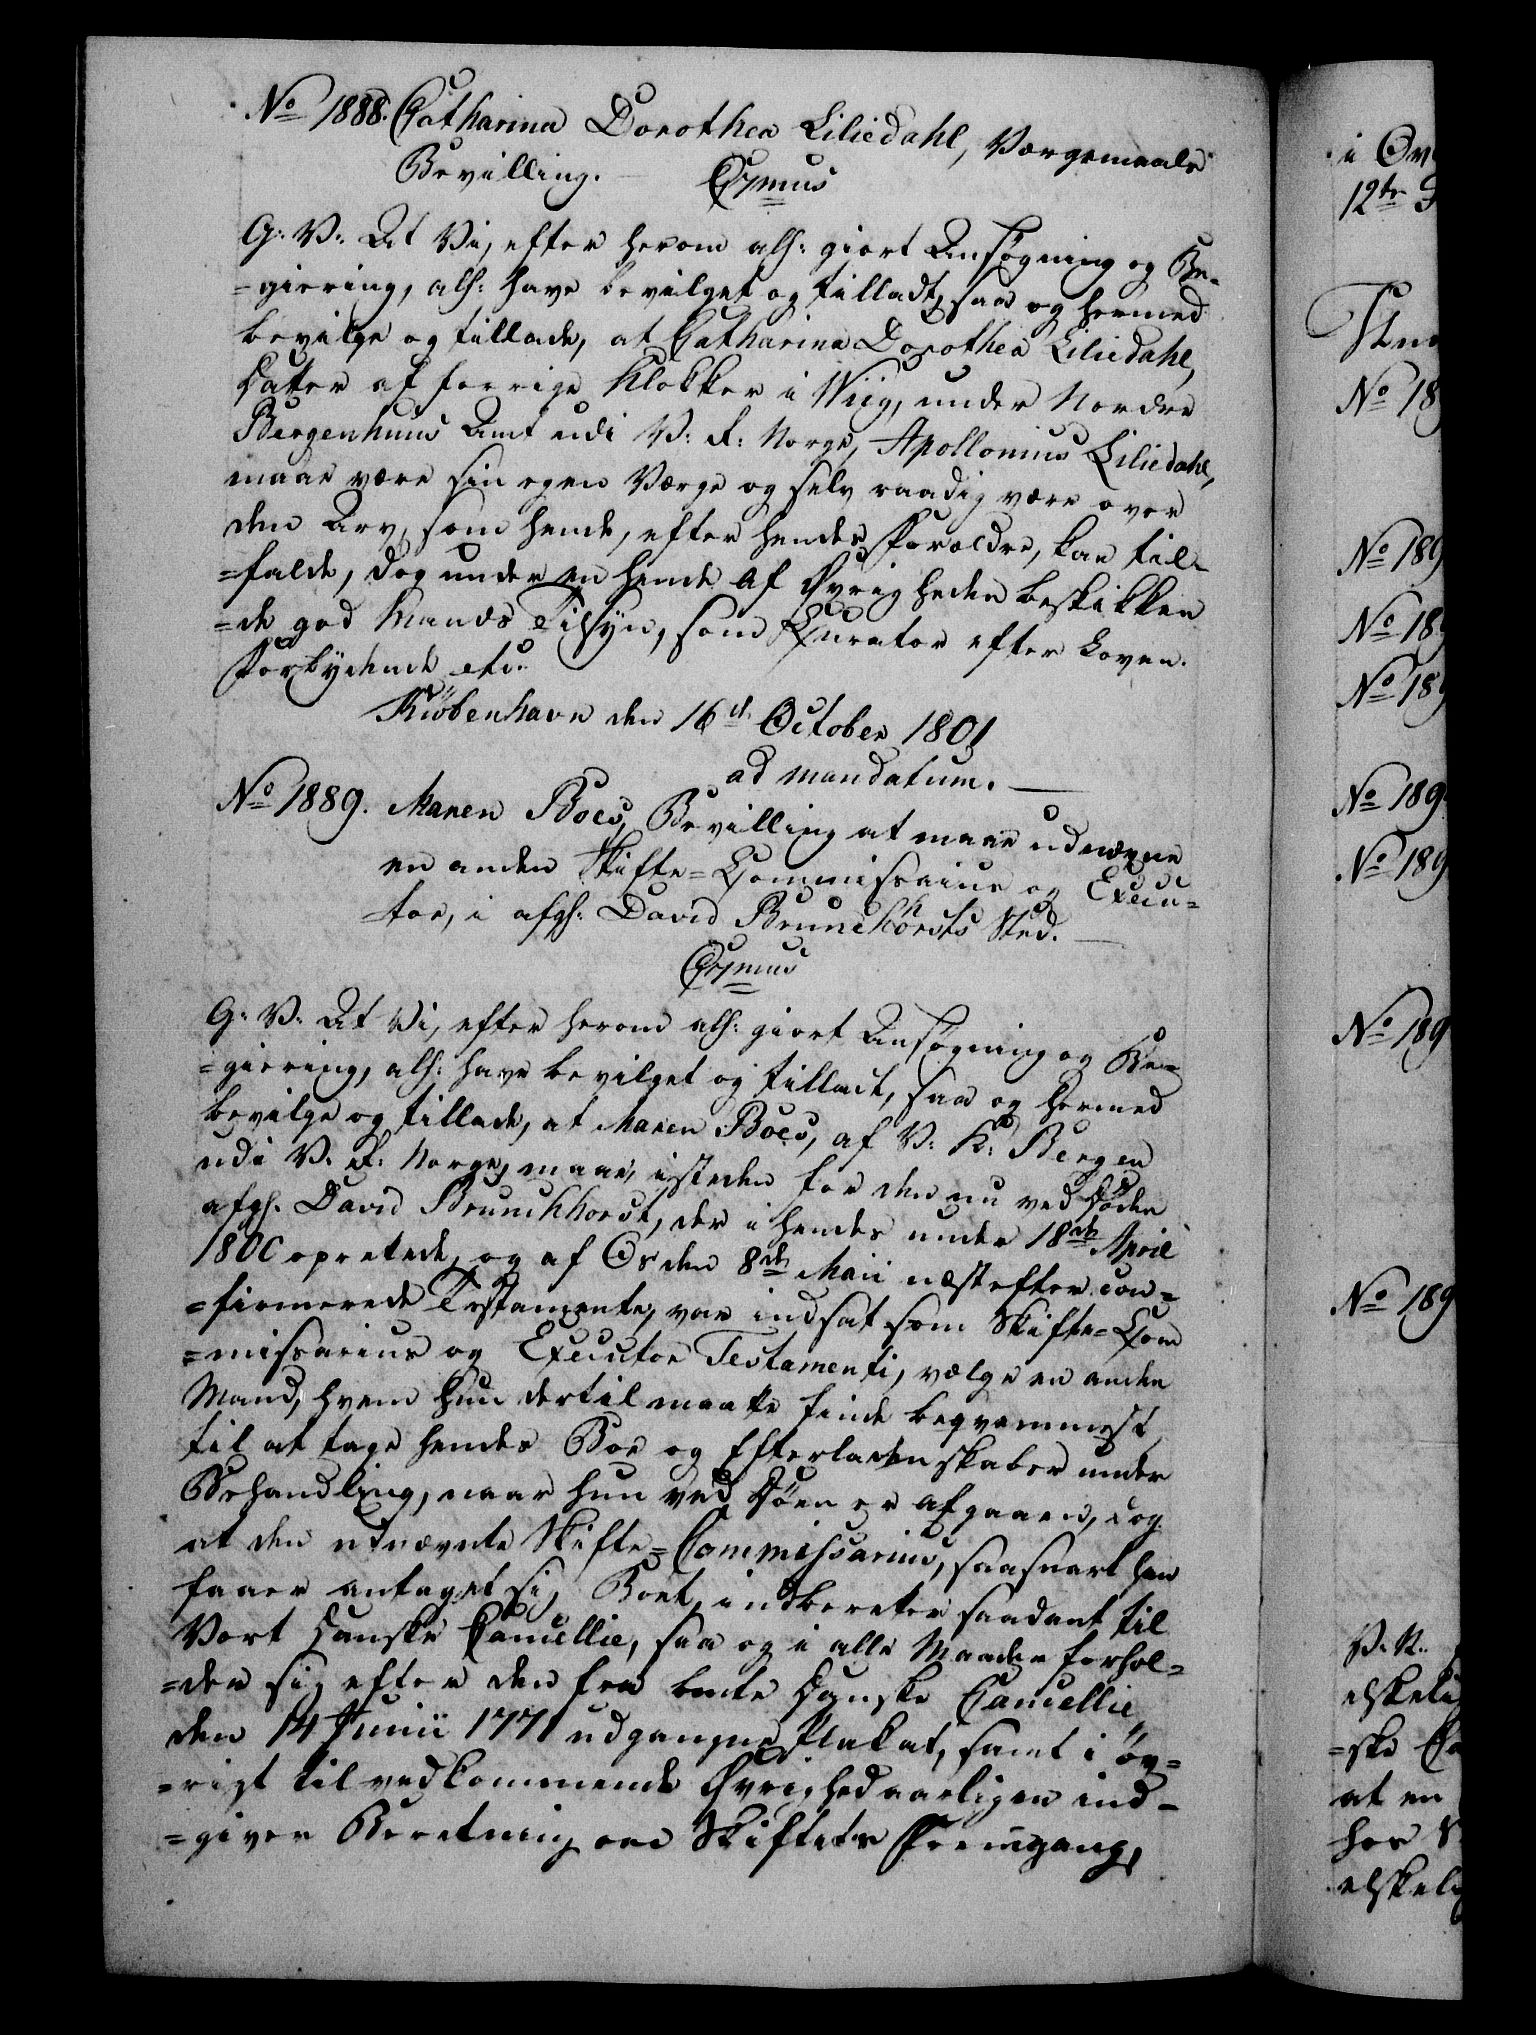 No 1888. Catharina Dorothea Liliedahl, Værgemaals
Bevilling.
C7mus
G: V: At Vi, efter herom alh: giort Ansøgning og Be-
=giering, alh: have bevilget og tilladt, saa og hermed
bevilge og tillade, at Catharina Dorothea Liliedahl,
Datter af forrige Klokker i Wiig, under Nordre
Bergenhuus Amt udi V: R: Norge, Apollonius Liliedahl,
maae være sin egen Værge og selv raadig være over
den Arv, som hende, efter hendes Forældre, kan til-
=falde, dog under en hende af Øvrigheden beskikken
=de god Mands Tilsyn, som Curator efter Loven.
Forbydende etc:
Kiøbenhavn den 16de October 1801
ad mandatum.
No 1889. Maren Boes, Bevilling at maae udnævne
en anden Skifte=Commissarius og Execu=
tor, i afgh: David Brunckhorsts Sted.
C7mus
G: V: At Vi, efter herom alh: giort Ansøgning og Be=
=giering, alh: have bevilget og tilladt, saa og hermed
bevilge og tillade, at Maren Boes, af V: K: Bergen
udi V: R: Norge, maae, isteden for den nu ved Døden
afgh: David Brunckhorst, der i hendes under 18de April
1800 oprettede, og af Os den 8de Maii næstefter con=
=firmerede Testamente, var indsat som Skifte=Com
=missarius og Executor Testamenti, vælge en anden
Mand, hvem hun dertil maatte finde beqvemmest,
til at tage hendes Boe og Efterladenskaber under
Behandling, naar hun ved Døen er afgaaen, dog
at den udnævnte Skifte=Commissarius, saasnart han
faaer antaget sig Boet, indberetter saadant til
Vort Danske Cancellie, saa og i alle Maader forhol=
=der sig efter den fra bemte Danske Cancellie
den 14 Junii 1771 udgangne Plakat, samt i øv=
=rigt til vedkommende Øvrighed aarligen ind=
=giver Beretning om Skiftets Fremgang,
i Øv
12te
No 18
No 189
No 189
No 189
No 189
No 189
No 189
No 189
V. R.
elskeli
=ske Ca
at en
hos
elskeli